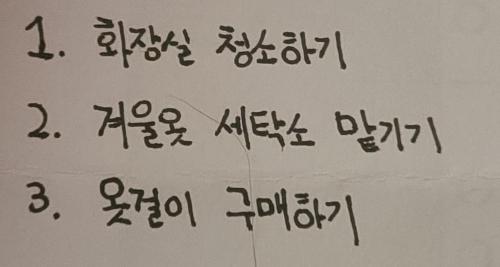 1. 화장실 청소하기
2. 겨울옷 세탁소 맡기기
3. 옷걸이 구매하기